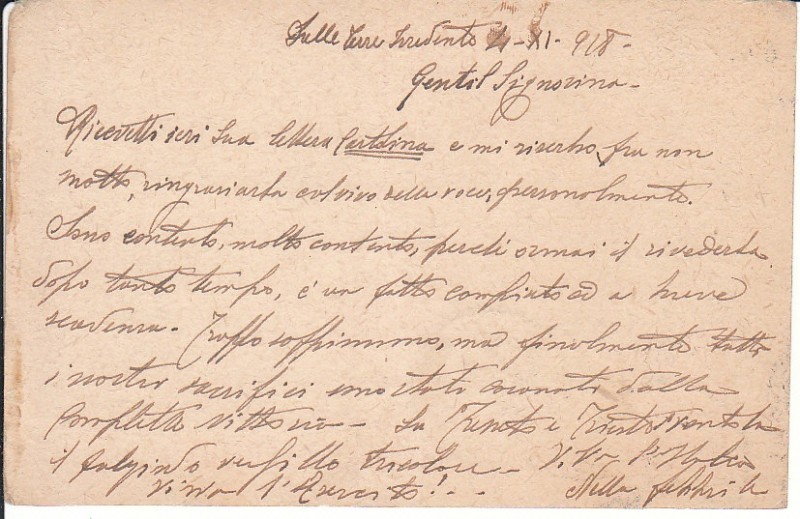 Sulle Terre Irredente 4-XI-918-
Gentil Signorina-
Ricevetti ieri sua lettera Cartolina e mi riserbo, fra non
molto, ringraziarla col vivo della voce, personalmente.
Sono contento, molto contento, perché ormai il rivederla
dopo tanto tempo, é un fatto compiuto ed a breve
scadenza- Troppo soffrimmo, ma finalmente tutti
i nostri sacrifici sono stati coronati dalla
completa vittoria- Su Trento e Trieste sventola
il fulgido vessillo tricolore- V.Va l'Italia
Viva l'Esercito!- Nella